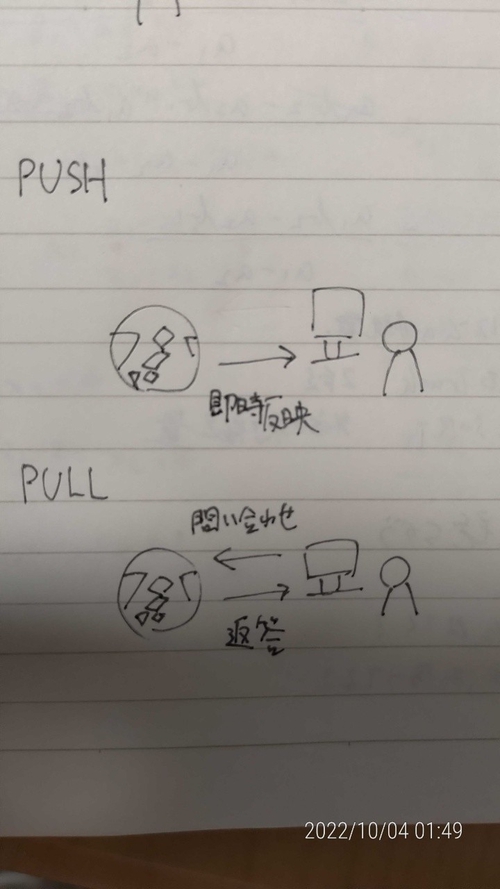 PUSH
即時反映
PULL
問い合わせ
返答
2022/10/04 01:49